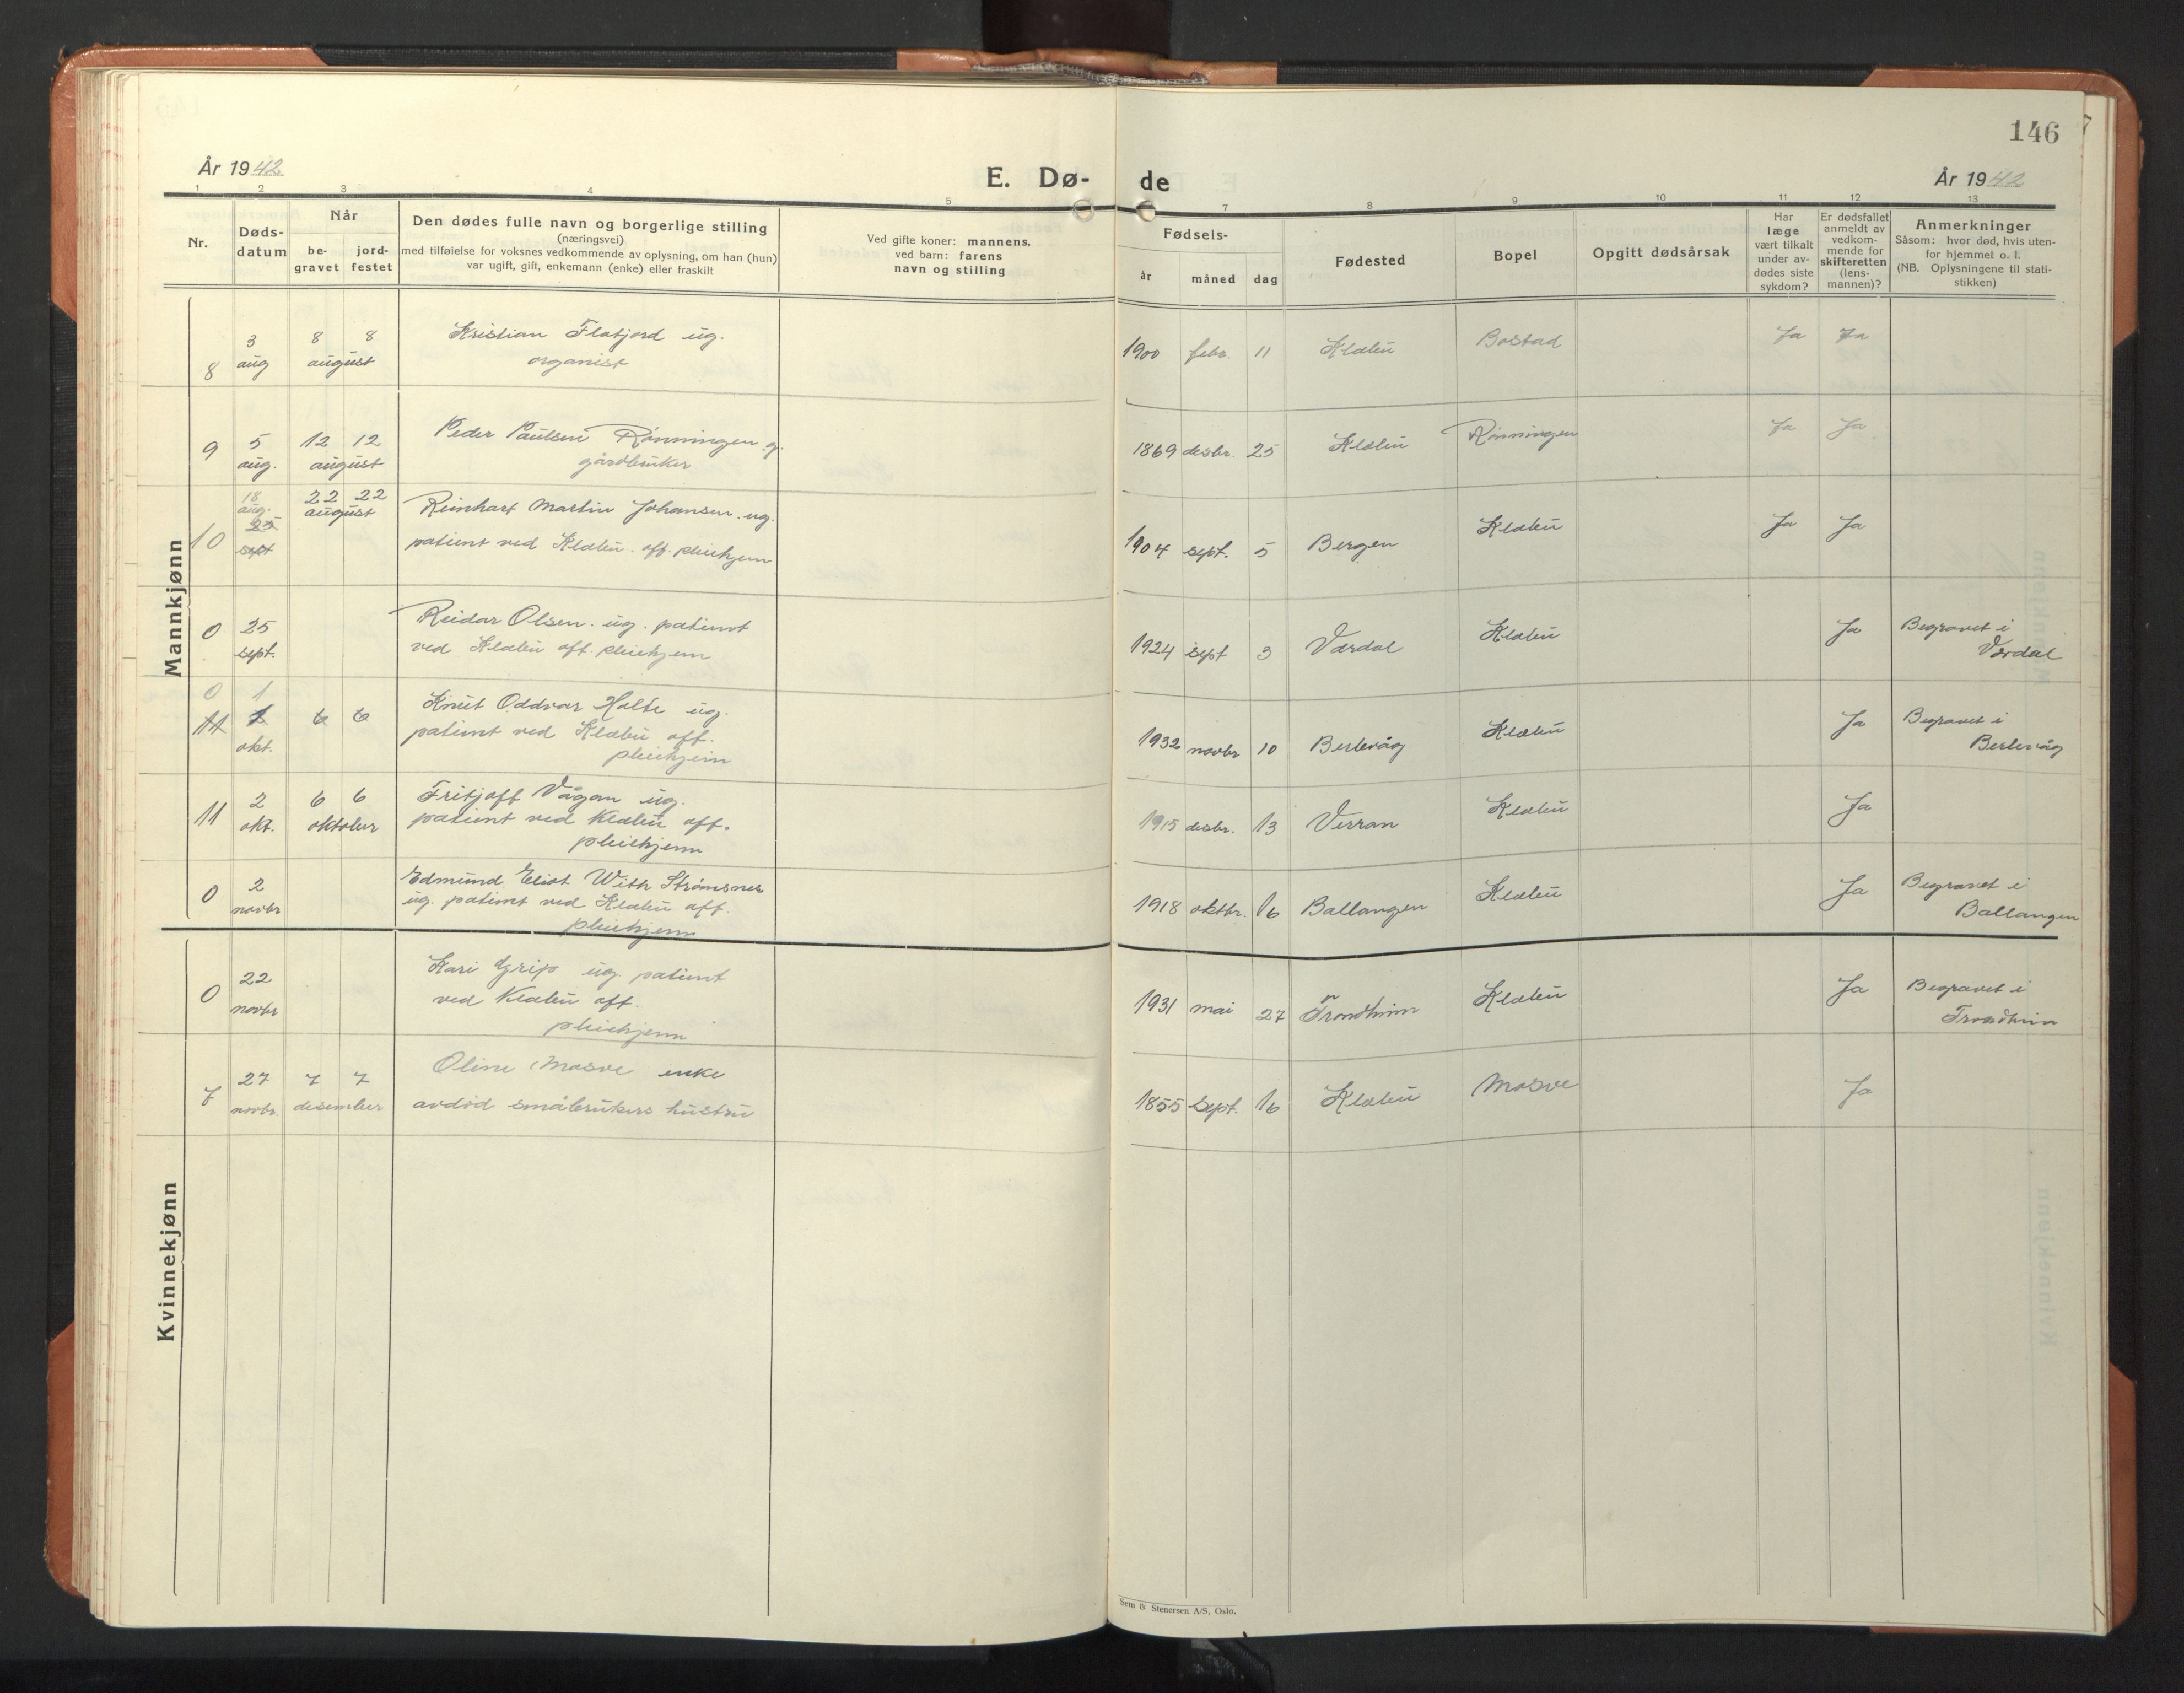 146
År 1942
E. Dø-
de
År 1942
1 2 3 4 5 7 8 9 10 11 12 13
Nr.
Døds-
datum
Når
be-
gravet
jord-
festet
Den dødes fulle navn og borgerlige stilling
(næringsvei)
med tilføielse for voksnes vedkommende av oplysning, om han (hun)
var ugift, gift, enkemann (enke) eller fraskilt
Ved gifte koner: mannens,
ved barn: farens
navn og stilling
Fødsels-
år
måned
dag
Fødested
Bopel
Opgitt dødsårsak
Har
læge
vært tilkalt
under av-
dødes siste
sykdom?
Er dødsfallet
anmeldt av
vedkom-
mende for
skifteretten
(lens-
mannen)?
Anmerkninger
Såsom: hvor død, hvis uten-
for hjemmet o. l.
(NB. Oplysningene til stati-
stikken)
Mannkjønn
8
3
aug
8 8
august
Kristian Flatjord ug.
organist
1900 febr. 11 Klæbu Bostad Ja Ja
9
5
aug.
12 12
august
Peder Paulsen Rønningen g.
gårdbruker
1869 desbr. 25 Klæbu Rønningen Ja Ja
10
18
aug.
25
sept
22 22
august
Reinhart Martin Johansen. ug.
patient ved Klæbu. off. pleiehjem
1904 sept. 5 Bergen Klæbu Ja Ja
0
25
sept.
Reidar Olsen. ug. patient
ved Klæbu off. pleiehjem
1924 sept 3 Værdal Klæbu Ja Begravet i
Værdal
0 1
11
1
okt.
6 6
Knut Oddvar Holte ug.
patient ved Klæbu off.
pleiehjem
1932 novbr 10 Berlevåg Klæbu Ja Begravet i
Berlevåg
11
2
okt.
6 6
oktober
Fritjoff Vågan ug.
patient ved Klæbu off.
pleiehjem
1915 desbr. 13 Verran Klæbu Ja
0
2
novbr
Edmund Eliot With Strømsnes
ug. patient ved Klæbu off.
pleiehjem
1918 oktbr. 16 Ballangen Klæbu Ja Begravet i
Ballangen
Kvinnekjønn
0
22
novbr
Kari Grip ug. patient
ved Klæbu off.
pleiehjem
1931 mai 27 Trondheim Klæbu Ja Begravet i
Trondheim
7
27
novbr.
7 7
desember
Oline Mosve enke
avdød småbrukers hustru
1855 sept. 16 Klæbu Mosve Ja
Sem & Stenersen A/S, Oslo.